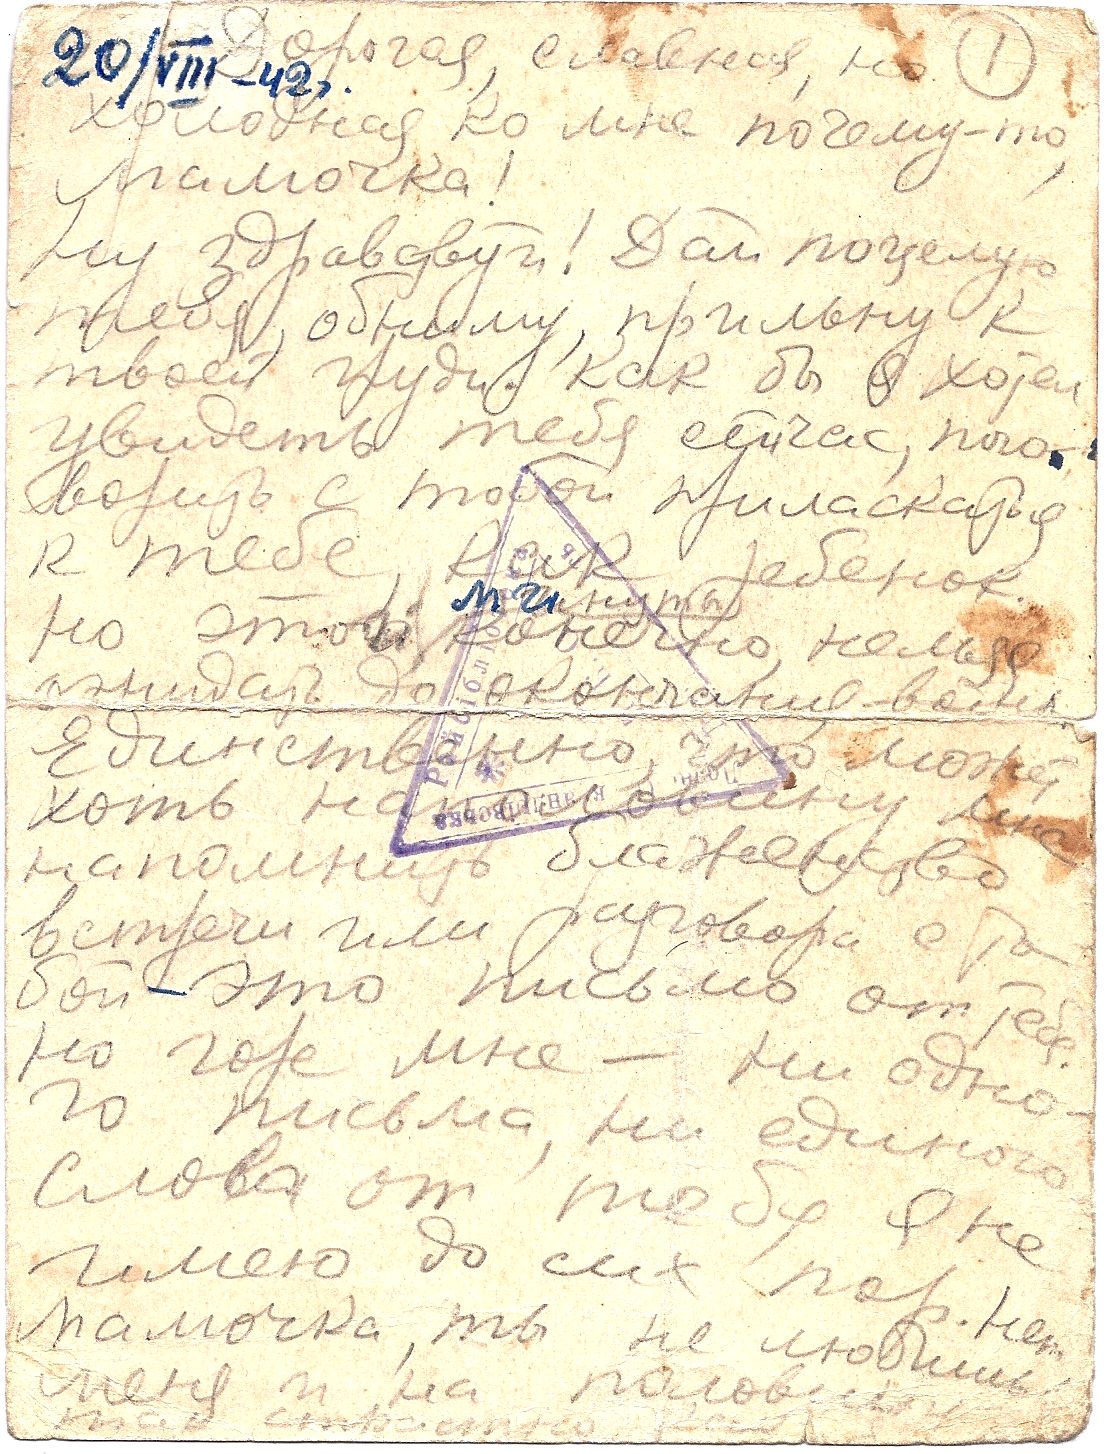 20/VIII-42г.
1
Дорогая, славная, но
холодная ко мне почему-то,
мамочка!
Ну здравствуй! Дай поцелую
тебя, обниму, прильну к
твоей груди. Как бы я хотел
увидеть тебя сейчас, пого-
ворить с тобой приласкаться
к тебе, как ребенок.
минуты
Но этой, конечно, нельзя
ожидать до окончания войны.
Единственно, что может
хоть на половину мне
напомнить блаженство
встречи или разговора с то-
бой - это письмо от тебя.
Но горе мне — ни одно-
го письма, ни единого
слова от тебя я не
имею до сих пор. Нет
мамочка, ты не любишь
меня и на половину
так страстно как